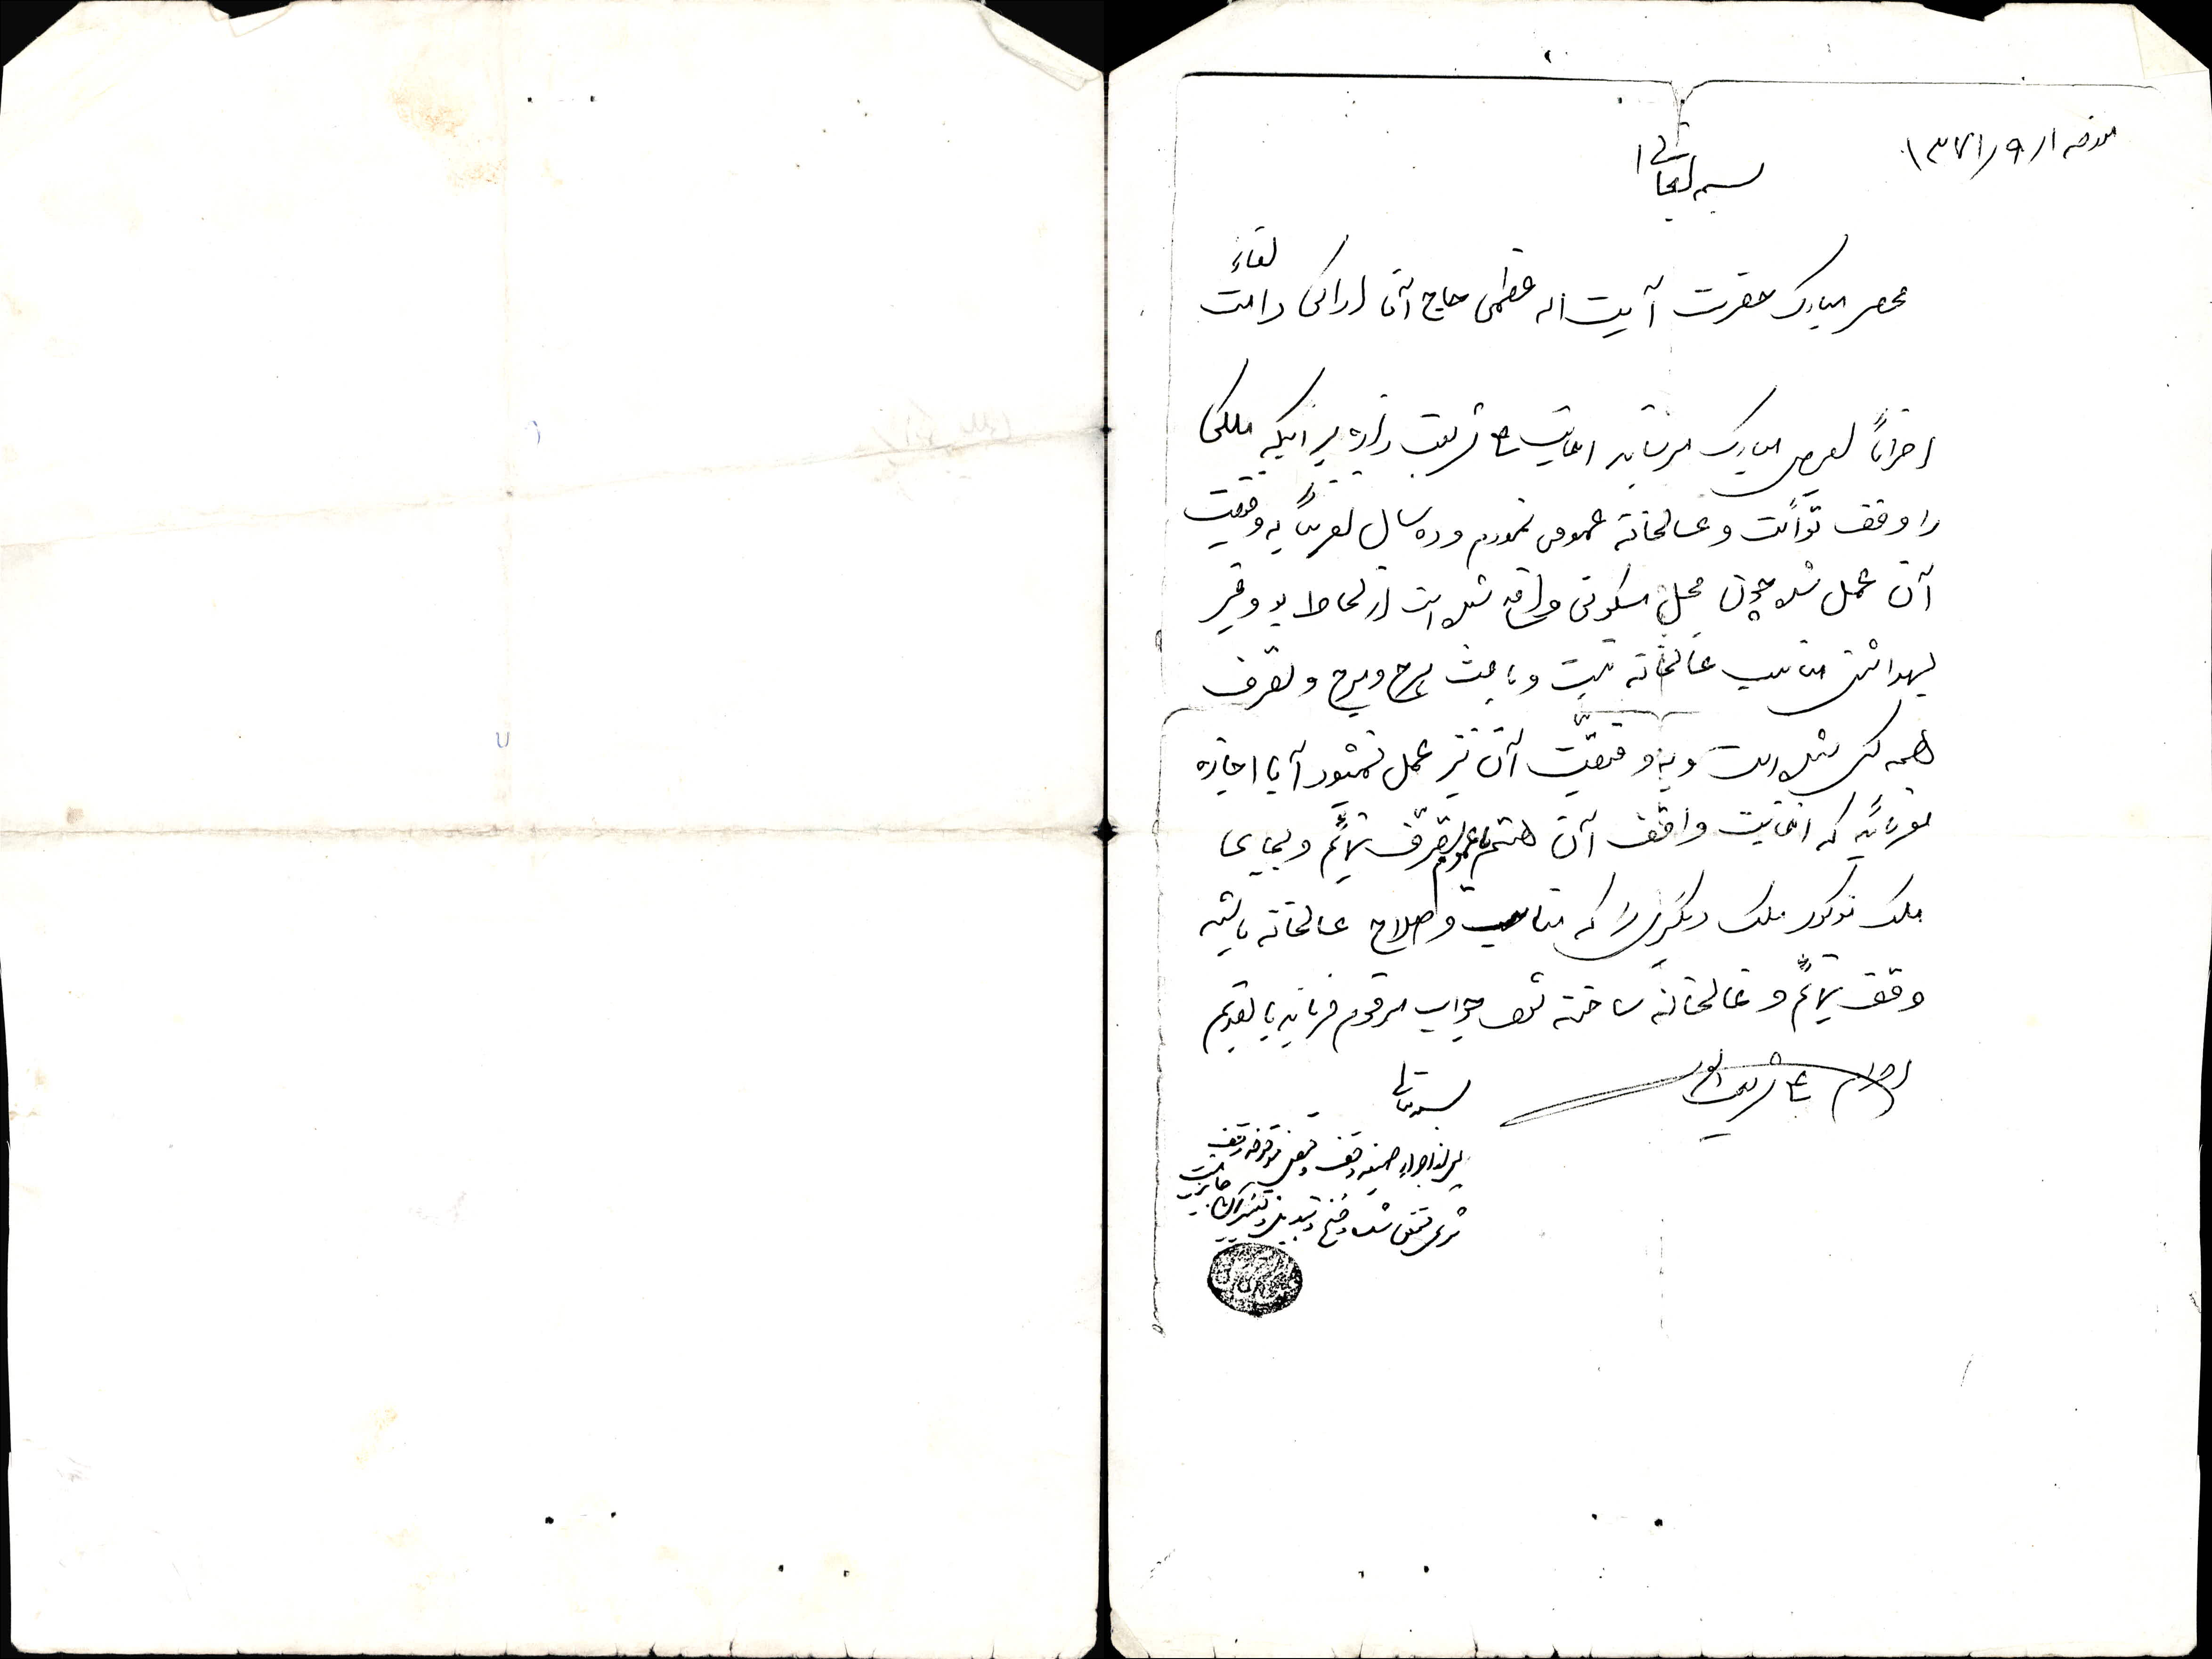 مورخه ۱۳۷۱/۹/۱
بسمه تعالی
محضر مبارک حضرت آیت اله عظمی حاج آقا اراکی دامت بقائه
احتراماً بعرض مبارک میرساند اینجانب شریعت زاده بر اینکه ملکی
را وقف توالت و غسالخانه عمومی نمودم و ده سال تقریباً به وقفیت
آن عمل شد چون محل مسکونی واقع شده است از لحاظ بو و غیر
بهداشتی مناسب غسالخانه نیست و باعث هرج و مرج و تصرف
همه کس شده است و به وقفیّت آن نیز عمل نمیشود آیا اجازه
میفرمائید که اینجانب واقف آن هستم تصرّف نمائم و بجای
ملک مذکور ملک دیگری را که مناسب و صلاح غسالخانه باشد
وقف نمائم و غسالخانه ساخته شود جواب مرقوم فرمائید با تقدیم
احترام
بسمه تعالی
پس از اجراء صیغه وقف و قبض موقوفه وقف
شرعی محقق شده و فسخ و تبدیل و تغییر آن جایز نیست